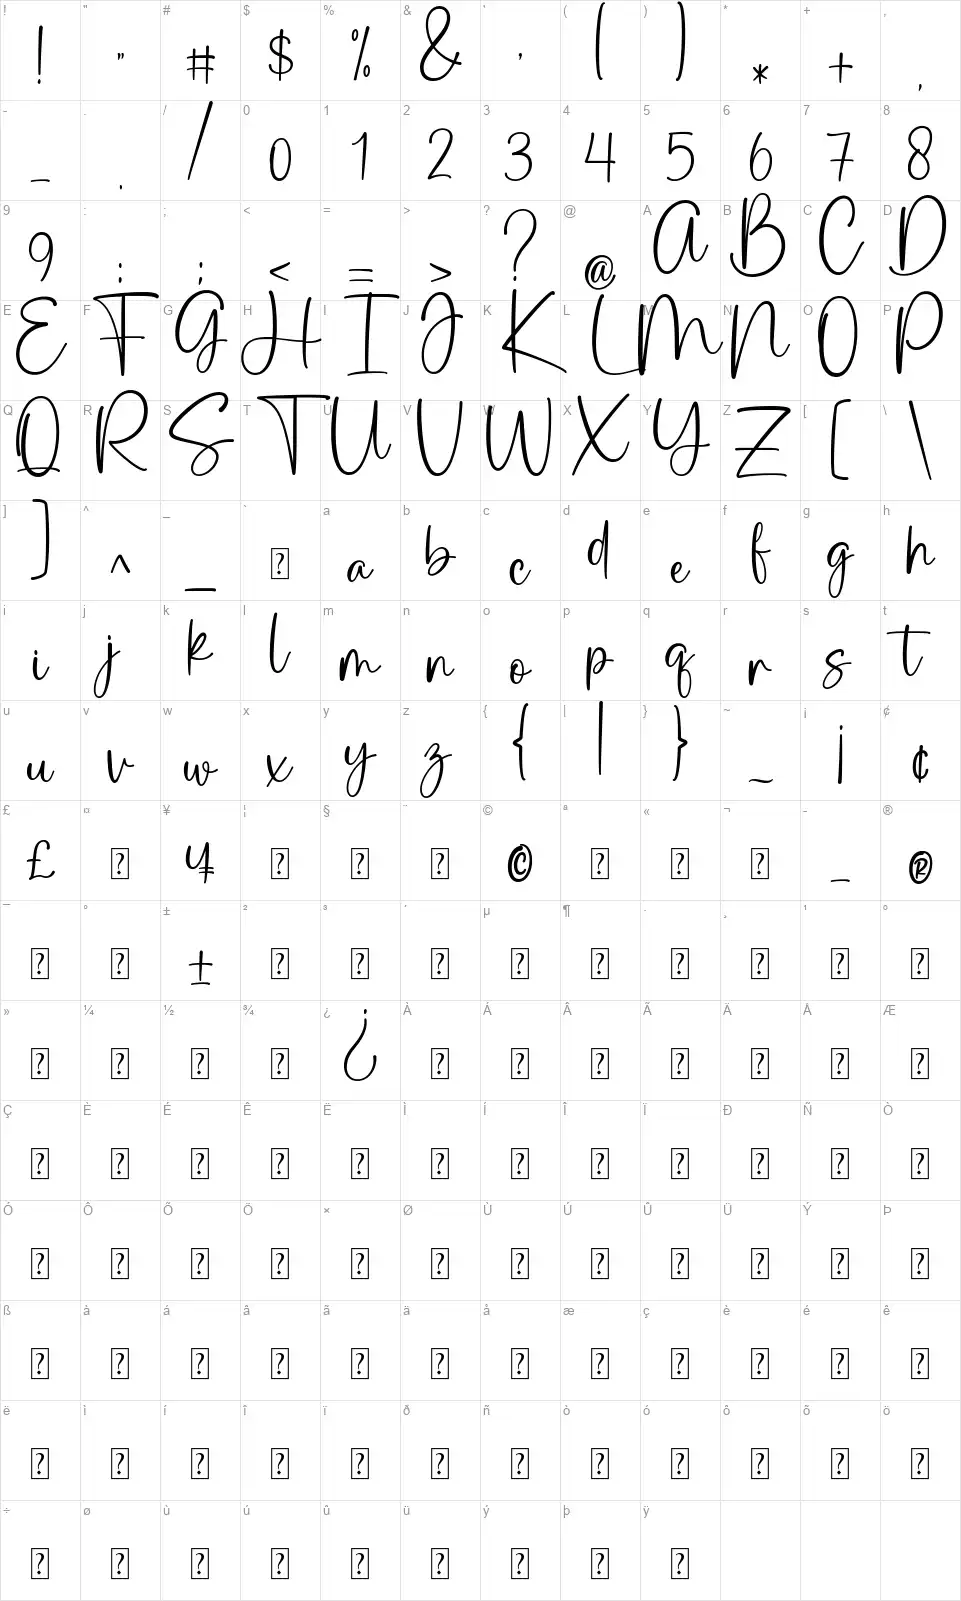 ! " # $ % & ' ( ) * + ,
! " # $ % & ' ( ) * + ,
- . / 0 1 2 3 4 5 6 7 8
- . / 0 1 2 3 4 5 6 7 8
9 : ; < = > ? @ A B C D
9 : ; < = > ? @ A B C D
E F G H I J K L M N O P
E F G H I J K L M N O P
Q R S T U V W X Y Z [ \
Q R S T U V W X Y Z [ \
] ^ _ ` a b c d e f g h
] ^ _ ? a b c d e f g h
i j k l m n o p q r s t
i j k l m n o p q r s t
u v w x y z { | } ~ ¡ ¢
u v w x y z { | } ~ ¡ ¢
£ ¤ ¥ ¦ § ¨ © ª « ¬ - ®
£ ? ¥ ? ? ? © ? ? ? - ®
¯ ° ± ² ³ ´ µ ¶ · ¸ ¹ º
? ? ± ? ? ? ? ? ? ? ? ?
» ¼ ½ ¾ ¿ À Á Â Ã Ä Å Æ
? ? ? ? ¿ ? ? ? ? ? ? ?
Ç È É Ê Ë Ì Í Î Ï Ð Ñ Ò
? ? ? ? ? ? ? ? ? ? ? ?
Ó Ô Õ Ö × Ø Ù Ú Û Ü Ý Þ
? ? ? ? ? ? ? ? ? ? ? ?
ß à á â ã ä å æ ç è é ê
? ? ? ? ? ? ? ? ? ? ? ?
ë ì í î ï ð ñ ò ó ô õ ö
? ? ? ? ? ? ? ? ? ? ? ?
÷ ø ù ú û ü ý þ ÿ
? ? ? ? ? ? ? ? ?